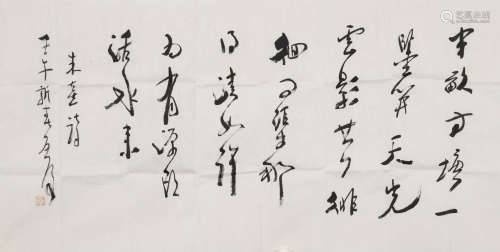 半畝方塘一
鑒开天光
雲影共徘
徊问渠那
得清如許
为有源頭
活水來
朱熹詩
壬午新春